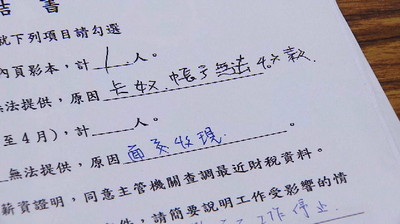 結 書
就下列項目請勾選
內頁影本，計 1 人。
無法提供，原因 卡奴.帳戶無法 款.
至4月)，計 人。
無法提供，原因 面交收現. 。
薪資證明，同意主管機關查調最近財稅資料。
件，請簡要說明工作受影響的情
工作 停止